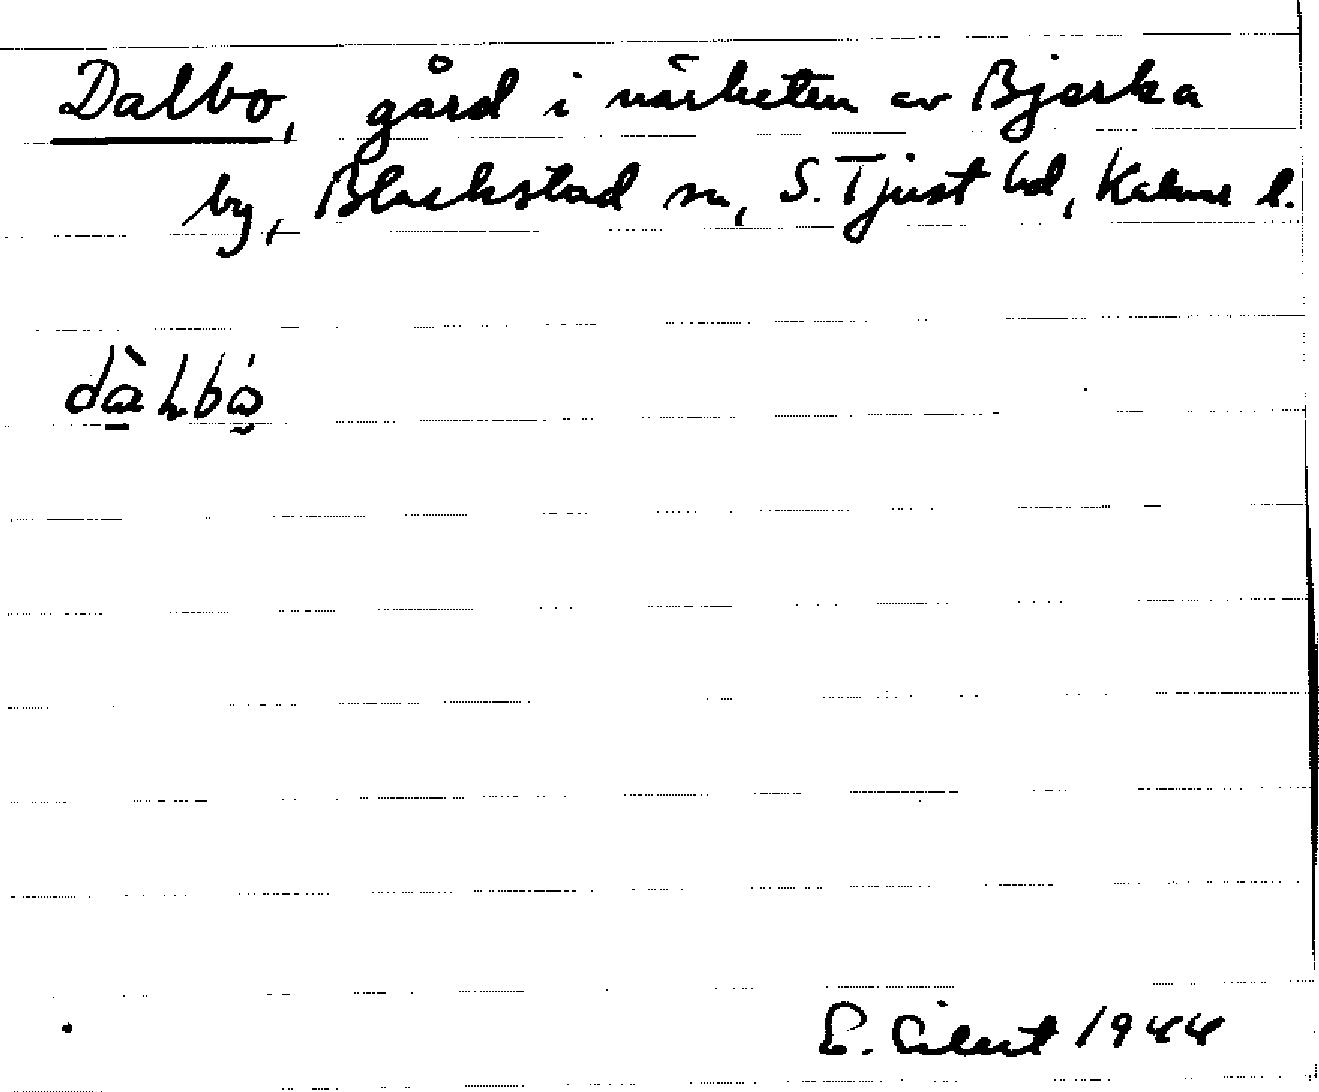 Dalbo, gård i närheten av Bjärka
by, Blackstad sn, S. Tjust hd, Kalmar l.
dàlbó
E. 1944